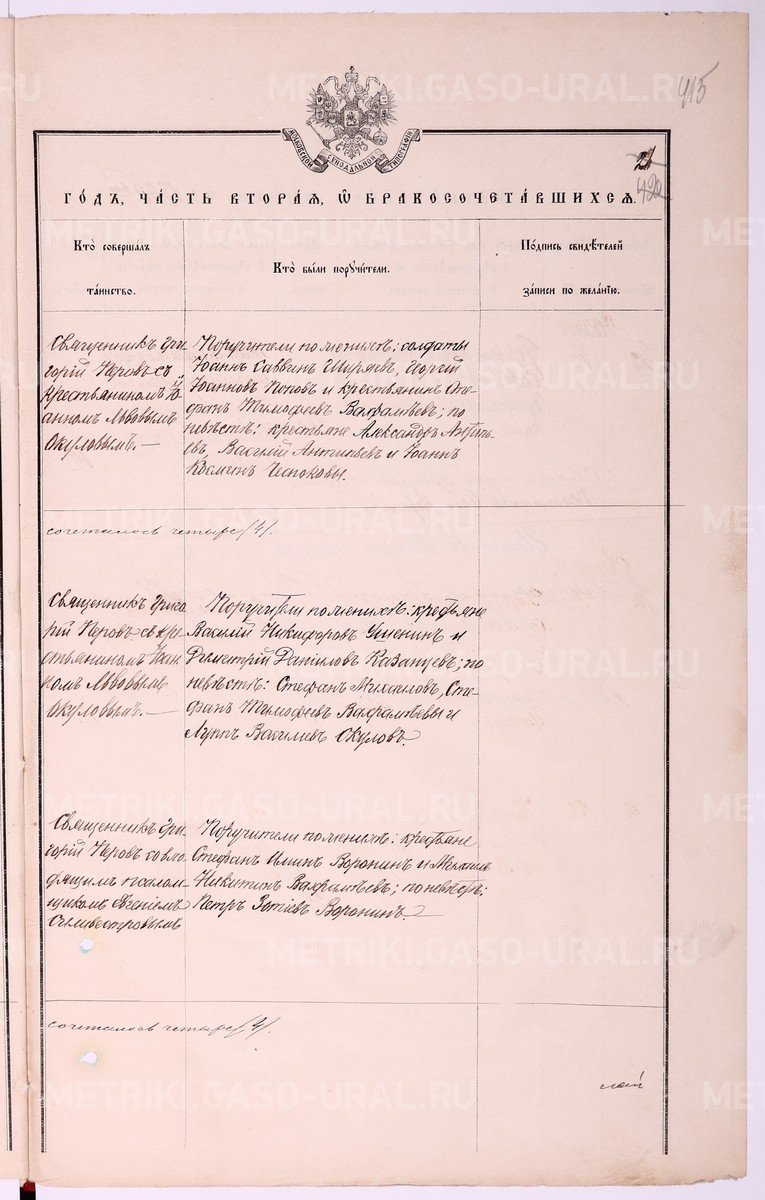 METRIKI.GASO-URAL.RU
415
МОСКОВСКОЙ СѴНОДАЛЬНОЙ ТИПОГРАФІИ
21
420
ГО́ДЪ, ЧА́СТЬ ВТОРА́Я, Ѡ҆ БРАКОСОЧЕТА́ВШИХСЯ.
Кто̀ соверша́лъ
та́инство.
Кто̀ бы́ли порꙋчи́тели.
По́дпись свидѣ́телей
за́писи по жела́нїю.
Священникъ Гри-
горій Перовъ съ
крестьяниномъ Іо-
анномъ Львовымъ
Окуловымъ.—
Поручители по женихѣ: солдаты
Іоаннъ Саввинъ Ширяевъ, Георгій
Іоанновъ Поповъ и крестьянинъ Сте-
фанъ Тимофеевъ Варфаламѣевъ; по
невѣстѣ: крестьяне Александръ Антипь-
евъ, Василій Антипьевъ и Іоаннъ
Косминъ
сочеталось четыре (4).
Священникъ Григо-
рій Перовъ съ кре-
стьяниномъ Іоан-
номъ Львовымъ
Окуловымъ.—
Поручители по женихѣ: крестьяне
Василій Никифоровъ и
Димитрій Даниловъ Казанцевъ; по
невѣстѣ: Стефанъ Михаиловъ, Сте-
фанъ Тимофеевъ и
Луппъ Василиевъ Окуловъ.
Священникъ Гри-
горій Перовъ со вхо-
дящимъ псалом-
щикомъ Евгеніемъ
Сильвестровымъ
Поручители по женихѣ: крестьяне
Стефанъ Ильинъ Воронинъ и Михаилъ
Никитинъ; по невѣстѣ:
Петръ Зотіевъ Воронинъ.
сочеталось четыре (4).